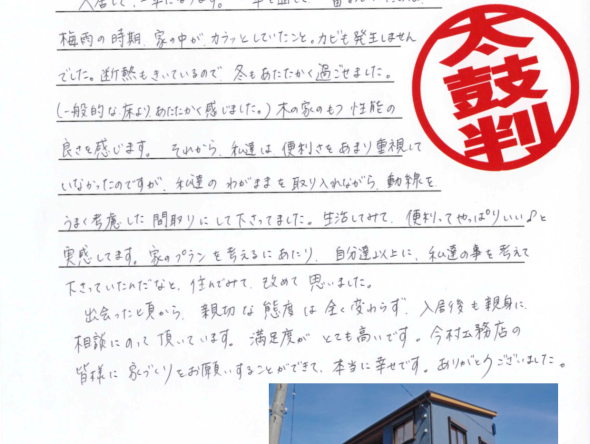 入居して、一年になります。
梅雨の時期、家の中が、カラッとしていたこと。カビも発生しません
でした。断熱もきいているので 冬もあたたかく過ごせました。
(一般的な床より、あたたかく感じました。) 木の家のもつ 性能の
良さを感じます。 それから、私達は、便利さをあまり重視して
いなかったのですが、私達の わがままを取り入れながら、動線を
うまく考慮した間取りにして下さってました。生活してみて、便利ってやっぱりいい♪と
実感してます。家のプランを考えるにあたり、自分達以上に、私達の事を考えて
下さっていたんだなと、住んでみて、改めて 思いました。
出会った頃から、親切な態度は全く変わらず、入居後も親身に
相談にのって頂いています。満足度が とても高いです。今村工務店の
皆様に 家づくりをお願いすることができて、本当に幸せです。ありがとうございました。
太鼓判